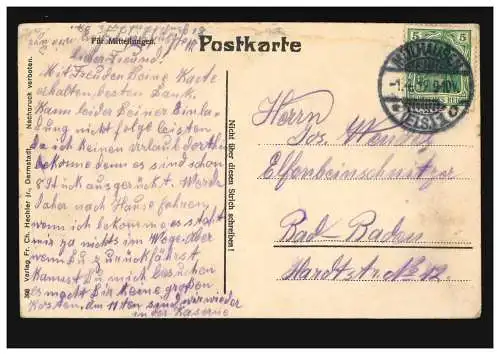 Für Mitteilungen.
Postkarte
Lieber Freund!
Mit Freuden Deine Karte
erhalten, besten Dank.
Kann leider Deiner Einla-
dung nicht folge leisten
da ich keinen Urlaub dorthin
bekomme denn es sind schon
8 Stück ausgerückt. Werde
daher nach Hause fahren,
wenn ich bekomme es steht
mir ja nichts im Wege. Aber
wenn Du zurückfährst
kannst Du mich besuchen
es macht Dir keine großen
Kosten. Am 11ten sind wir wieder
in der Kaserne
Nicht über diesen Strich schreiben!
368 Verlag Fr. Ch. Hechler jr., Darmstadt. Nachdruck verboten.
5 5
MÜLHAUSEN
(ELS)
Herrn
Jos. Wenditz
Elfenbeinschnitzer
Bad Baden
Hardtstr. No 12.